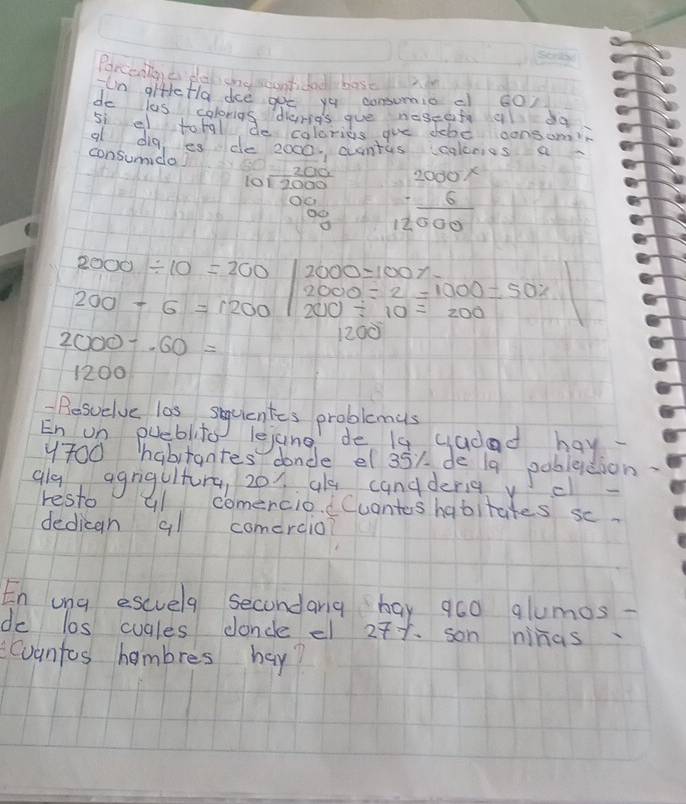 Porcentaje de una cantidad base
-Un atletla dce que ya consumio el 60%
de las calorias diarias que nesecita al dia
si el total de calorias que debe consomir
al dia, es de 2000, cuantas calorias a -
consumido
200
10 2000
00
00
0
2000 x
6
12000
2000 ÷ 10 = 200
200 - 6 = 1200
2000 - .60 =
1200
2000 = 100%
2000 ÷ 2 = 1000 = 50%
200 ÷ 10 = 200
1200
-Resuelve los siguientes problemas
En un pueblito lejano de la ciudad hay -
4700 habitantes donde el 35% de la poblacion -
ala agricultura, 20% ala canaderia y el -
resto al comercio. ¿Cuantos habitates se -
dedican al comercio?
En una escuela secundaria hay 960 alumos -
de los cuales donde el 27%. son niñas.
¿Cuantos hombres hay?